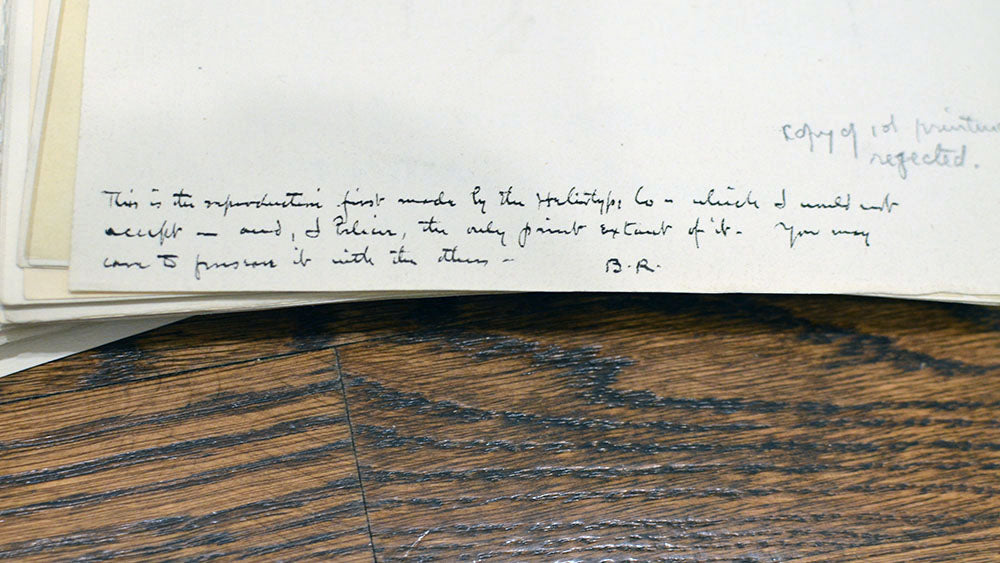 copy of 1st printing
rejected.
This is the reproduction first made by the Heliotype Co - which I would not
accept — and, I believe, the only print extant of it. You may
care to preserve it with the others -
B. R.